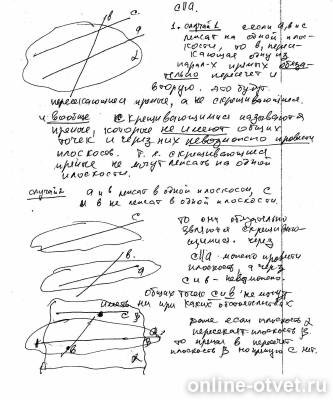 c||a.
в
с
а
1. случай 1 если а, в и с
лежат на одной плос-
кости, то в, пересе-
кающая одну из
парал-х прямых обяза-
тельно пересечет и
вторую. это будут
пересекающиеся прямые, а не скрещивающиеся.
и вообще скрещивающимися называются
прямые, которые не имеют общих
точек и через них невозможно провести
плоскость. т.е. скрещивающиеся
прямые не могут лежать на одной
плоскости.
случай 2 а и в лежат в одной плоскости, с
и в не лежат в одной плоскости.
с
то они
являются скрещиваю-
щимися. через
в.
а
c||a можно провести
плоскость, а через
с и в - невозможно.
общих точек с и в не могут
иметь ни при каких обстоятельствах
с
β
даже если плоскость α
пересекает плоскость β
в
α
то прямая в пересечет
плоскость β но прямую с нет.
online-otvet.ru